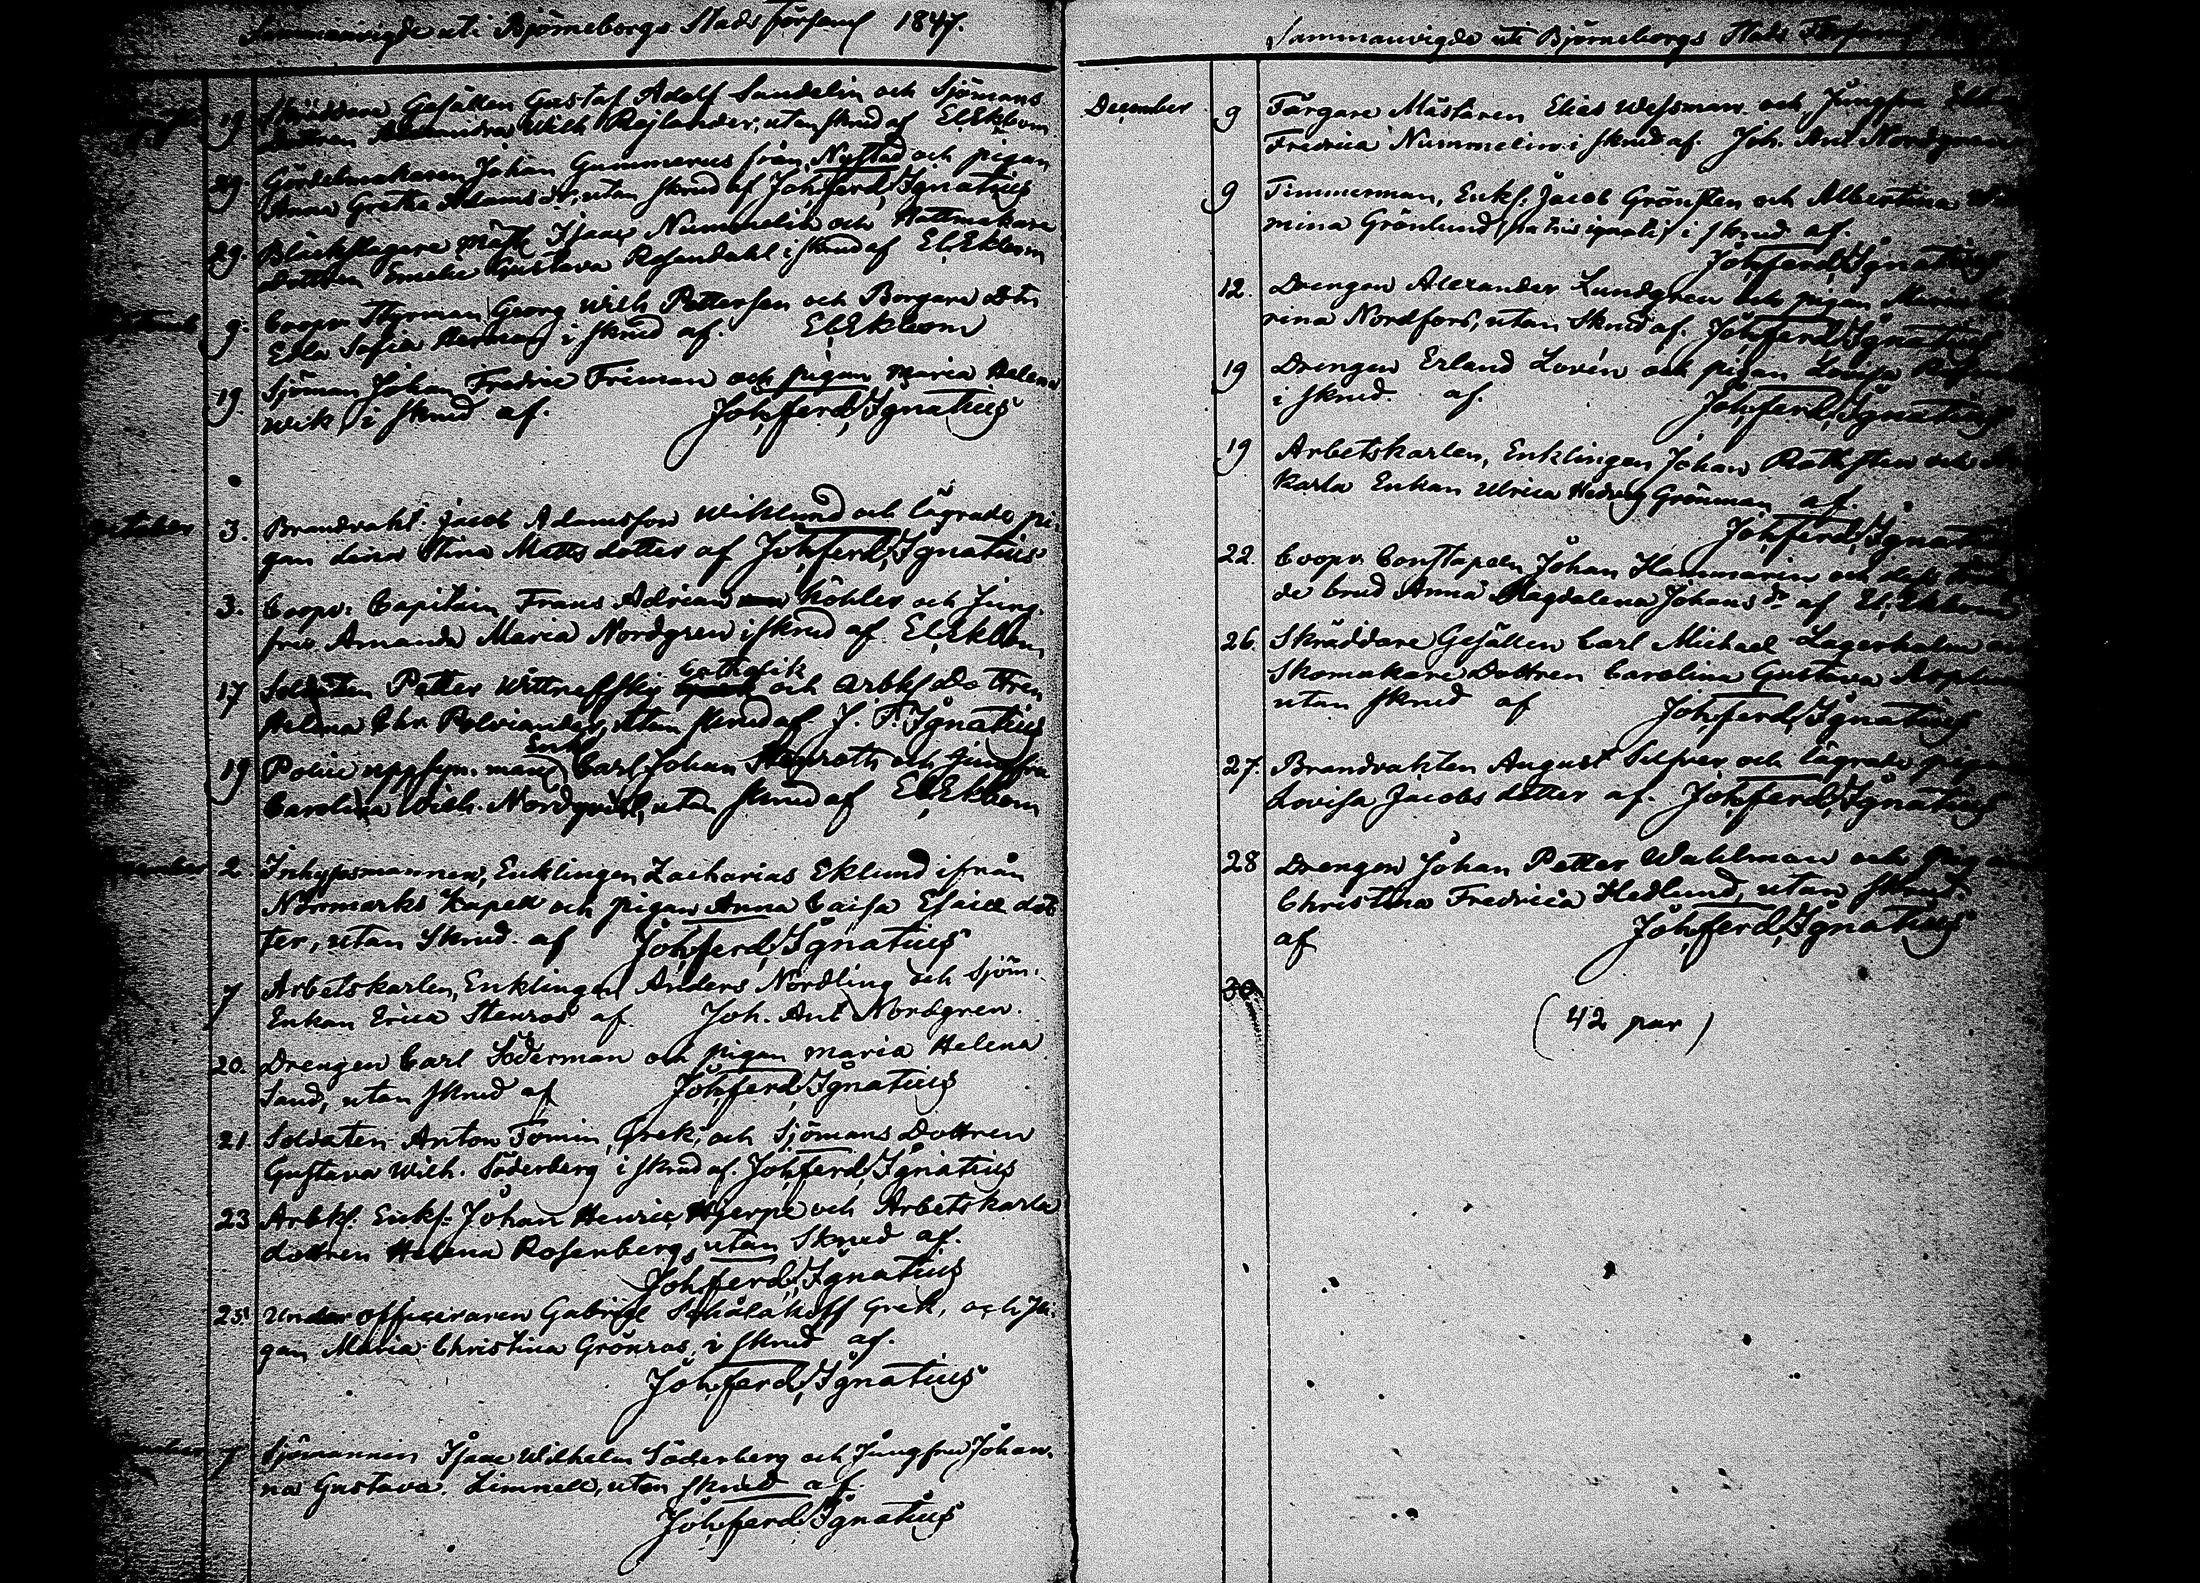 Sammanvigde uti Björneborgs Stads församl 1847.
19 Skräddare Gesällen Gustaf Adolf Sandelin och Sjömans
Dottren Alexandra Wilh Rajlander, utan skrud af El. Ekbom
29. Gördelmakaren Johan Gummerus från Nystad och pigan
Anna Gretha Adams dr, utan skrud af Joh. Ferd. Ignatius
29. Bläckslagare Mäst. Isaac Nummelin och Hattmakare
dottren Emelie Gustava Rosendahl i skrud af El. Ekbom
9. Coopv. Styrman Georg Wilh Pettersen och Borgare Dotr
Edla Sofia Herman i skrud af. El. Ekbom
19. Sjöman Johan Fredric Friman och pigan Maria Helena
Wik, i skrud af. Joh. Ferd. Ignatius
October 3. Brandvakt. Jacob Adamsson Wiklund och lägrade pi-
gan Lena Stina Matts dotter af Joh. Ferd. Ignatius
3. Coopv. Capitain Frans Adrian Köhler och Jung-
fru Amanda Maria Nordgren i skrud af El. Ekbom
Catholik
17 Soldaten Petter Wittneffsky och Arbks Dottren
Helena Chr. utan skrud af J. F. Ignatius
Enkl
19 Police uppsyn. man Carl Johan Stenroth och Jungfru
Carolina Wilh. Nordqvist, utan skrud af El. Ekbom
2 Inhysesmannen, Enklingen Zacharias Eklund ifrån
Norrmarks Kapell och pigan Anna Caisa Esaiæ dot
ter, utan Skrud. af Joh. Ferd. Ignatius
7 Arbetskarlen, Enklingen Anders Nordling och Sjöm.
Enkan Erica Stenros af. Joh. Ant Nordgren.
20. Drengen Carl Söderman och pigan Maria Helena
Sand, utan skrud af Joh. Ferd. Ignatius
21. Soldaten Anton Fomin, Grek, och Sjömans Dottren
Gustava Wilh. Söderberg i skrud af. Joh. Ferd. Ignatius
23 Arbk. Enkl: Johan Henric Hjerpe och Arbetskarla
dottren Helena Rosenberg, utan Skrud af.
Joh. Ferd. Ignatius
25. Under officeraren Gabriel Schalakoff Grek, och Pi-
gan Maria Christina Grönros, i skrud af.
Joh. Ferd. Ignatius
7 Sjömannen Isaac Wilhelm Söderberg och Jungfru Johan-
na Gustava Limnell, utan skrud af.
Joh. Ferd. Ignatius
Sammanvigde uti Björneborgs Stads Församl
December 9 Färgare Mästaren Elias Wessman och Jungfru
Fredrica Nummelin i skrud af. Joh. Ant Nordgren
9 Timmerman, Enkl. Jacob Grönsten och Albertina
mina Grönlund (patris ignoti) i skrud af.
Joh. Ferd. Ignatius
12. Drengen Alexander Lundgren och pigan Maria
rina Nordfors, utan Skrud af. Joh. Ferd. Ignatius
19 Drengen Erland Lovén och pigan Lovisa
i skrud. af. Joh. Ferd. Ignatius
19 Arbetskarlen, Enklingen Johan Rothsten och
karla Enkan Ulrica Hedvig Grönman af.
Joh. Ferd. Ignatius
22. Coopv. Constapeln Johan Hammarin och dess
de brud Anna Magdalena Johans dr af El. Ekbom
26. Skräddare Gesällen Carl Michael Lagerholm
Skomakare Dottren Carolina Gustava Asplund
utan skrud af Joh. Ferd. Ignatius
27. Brandvakten August Silfver och lägrade pigan
Lovisa Jacobs dotter af. Joh. Ferd. Ignatius
28 Drengen Johan Petter Wahlman och pigan
Christina Fredrica Hedlund, utan skrud.
af Joh. Ferd. Ignatius
30.
(42 par)